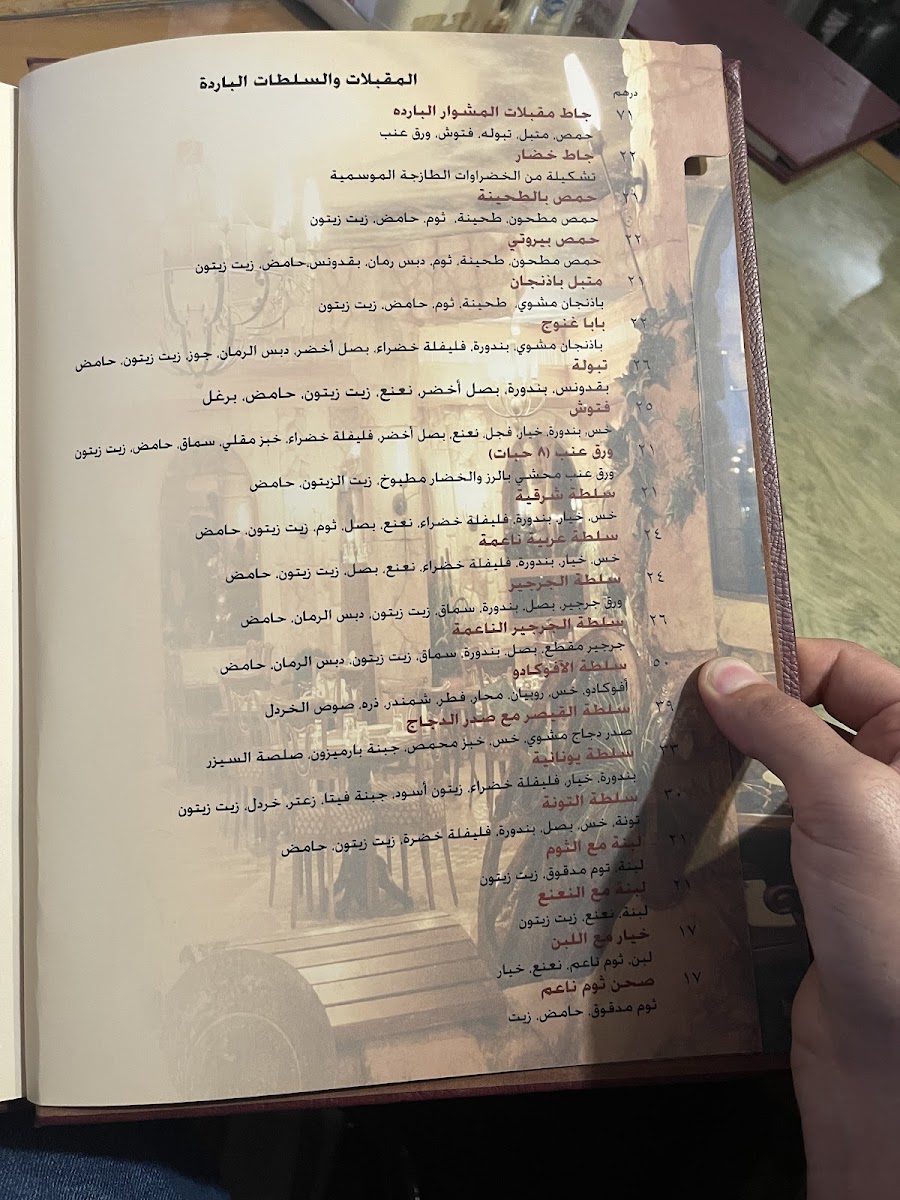 المقبلات والسلطات الباردة
درهم
جاط مقبلات المشوار البارده ٧١
حمص, متبل, تبوله, فتوش, ورق عنب
جاط خضار ٢٢
تشكيلة من الخضراوات الطازجة الموسمية
حمص بالطحينة
حمص مطحون, طحينة, ثوم, حامض, زيت زيتون
حمص بيروتي ٢٢
حمص مطحون, طحينة, ثوم, دبس رمان, بقدونس,حامض, زيت زيتون
متبل باذنجان ٢١
باذنجان مشوي, طحينة, ثوم, حامض, زيت زيتون
بابا غنوج ٢٢
باذنجان مشوي, بندورة, فليفلة خضراء, بصل أخضر, دبس الرمان, جوز, زيت زيتون, حامض
تبولة ٢٦
بقدونس, بندورة, بصل أخضر, نعنع, زيت زيتون, حامض, برغل
فتوش ٢٥
خس, بندورة, خيار, فجل, نعنع, بصل أخضر, فليفلة خضراء, خبز مقلي, سماق, حامض, زيت زيتون
ورق عنب (٨ حبات) ٢١
ورق عنب محشي بالرز والخضار مطبوخ, زيت الزيتون, حامض
سلطة شرقية ٢١
خس, خيار, بندورة, فليفلة خضراء, نعنع, بصل, ثوم, زيت زيتون, حامض
سلطة عربية ناعمة ٢٤
خس, خيار, بندورة, فليفلة خضراء, نعنع, بصل, زيت زيتون, حامض
سلطة الجرجير ٢٤
ورق جرجير, بصل, بندورة, سماق, زيت زيتون, دبس الرمان, حامض
سلطة الجرجير الناعمة ٢٦
جرجير مقطع, بصل, بندورة, سماق, زيت زيتون, دبس الرمان, حامض
سلطة الأفوكادو ٥٠
أفوكادو, خس, روبيان, محار, فطر, شمندر, ذره, صوص الخردل
سلطة القيصر مع صدر الدجاج ٣٩
صدر دجاج مشوي, خس, خبز محمص, جبنة بارميزون, صلصة السيزر
سلطة يونانية ٣٣
بندورة, خيار, فليفلة خضراء, زيتون أسود, جبنة فيتا, زعتر, خردل, زيت زيتون
سلطة التونة ٣٠
تونة, خس, بصل, بندورة, فليفلة خضرة, زيت زيتون, حامض
لبنة مع الثوم ٢١
لبنة, توم مدقوق, زيت زيتون
لبنة مع النعنع ٢١
لبنة, نعنع, زيت زيتون
خيار مع اللبن ١٧
لبن, ثوم ناعم, نعنع, خيار
صحن ثوم ناعم ١٧
ثوم مدقوق, حامض, زيت